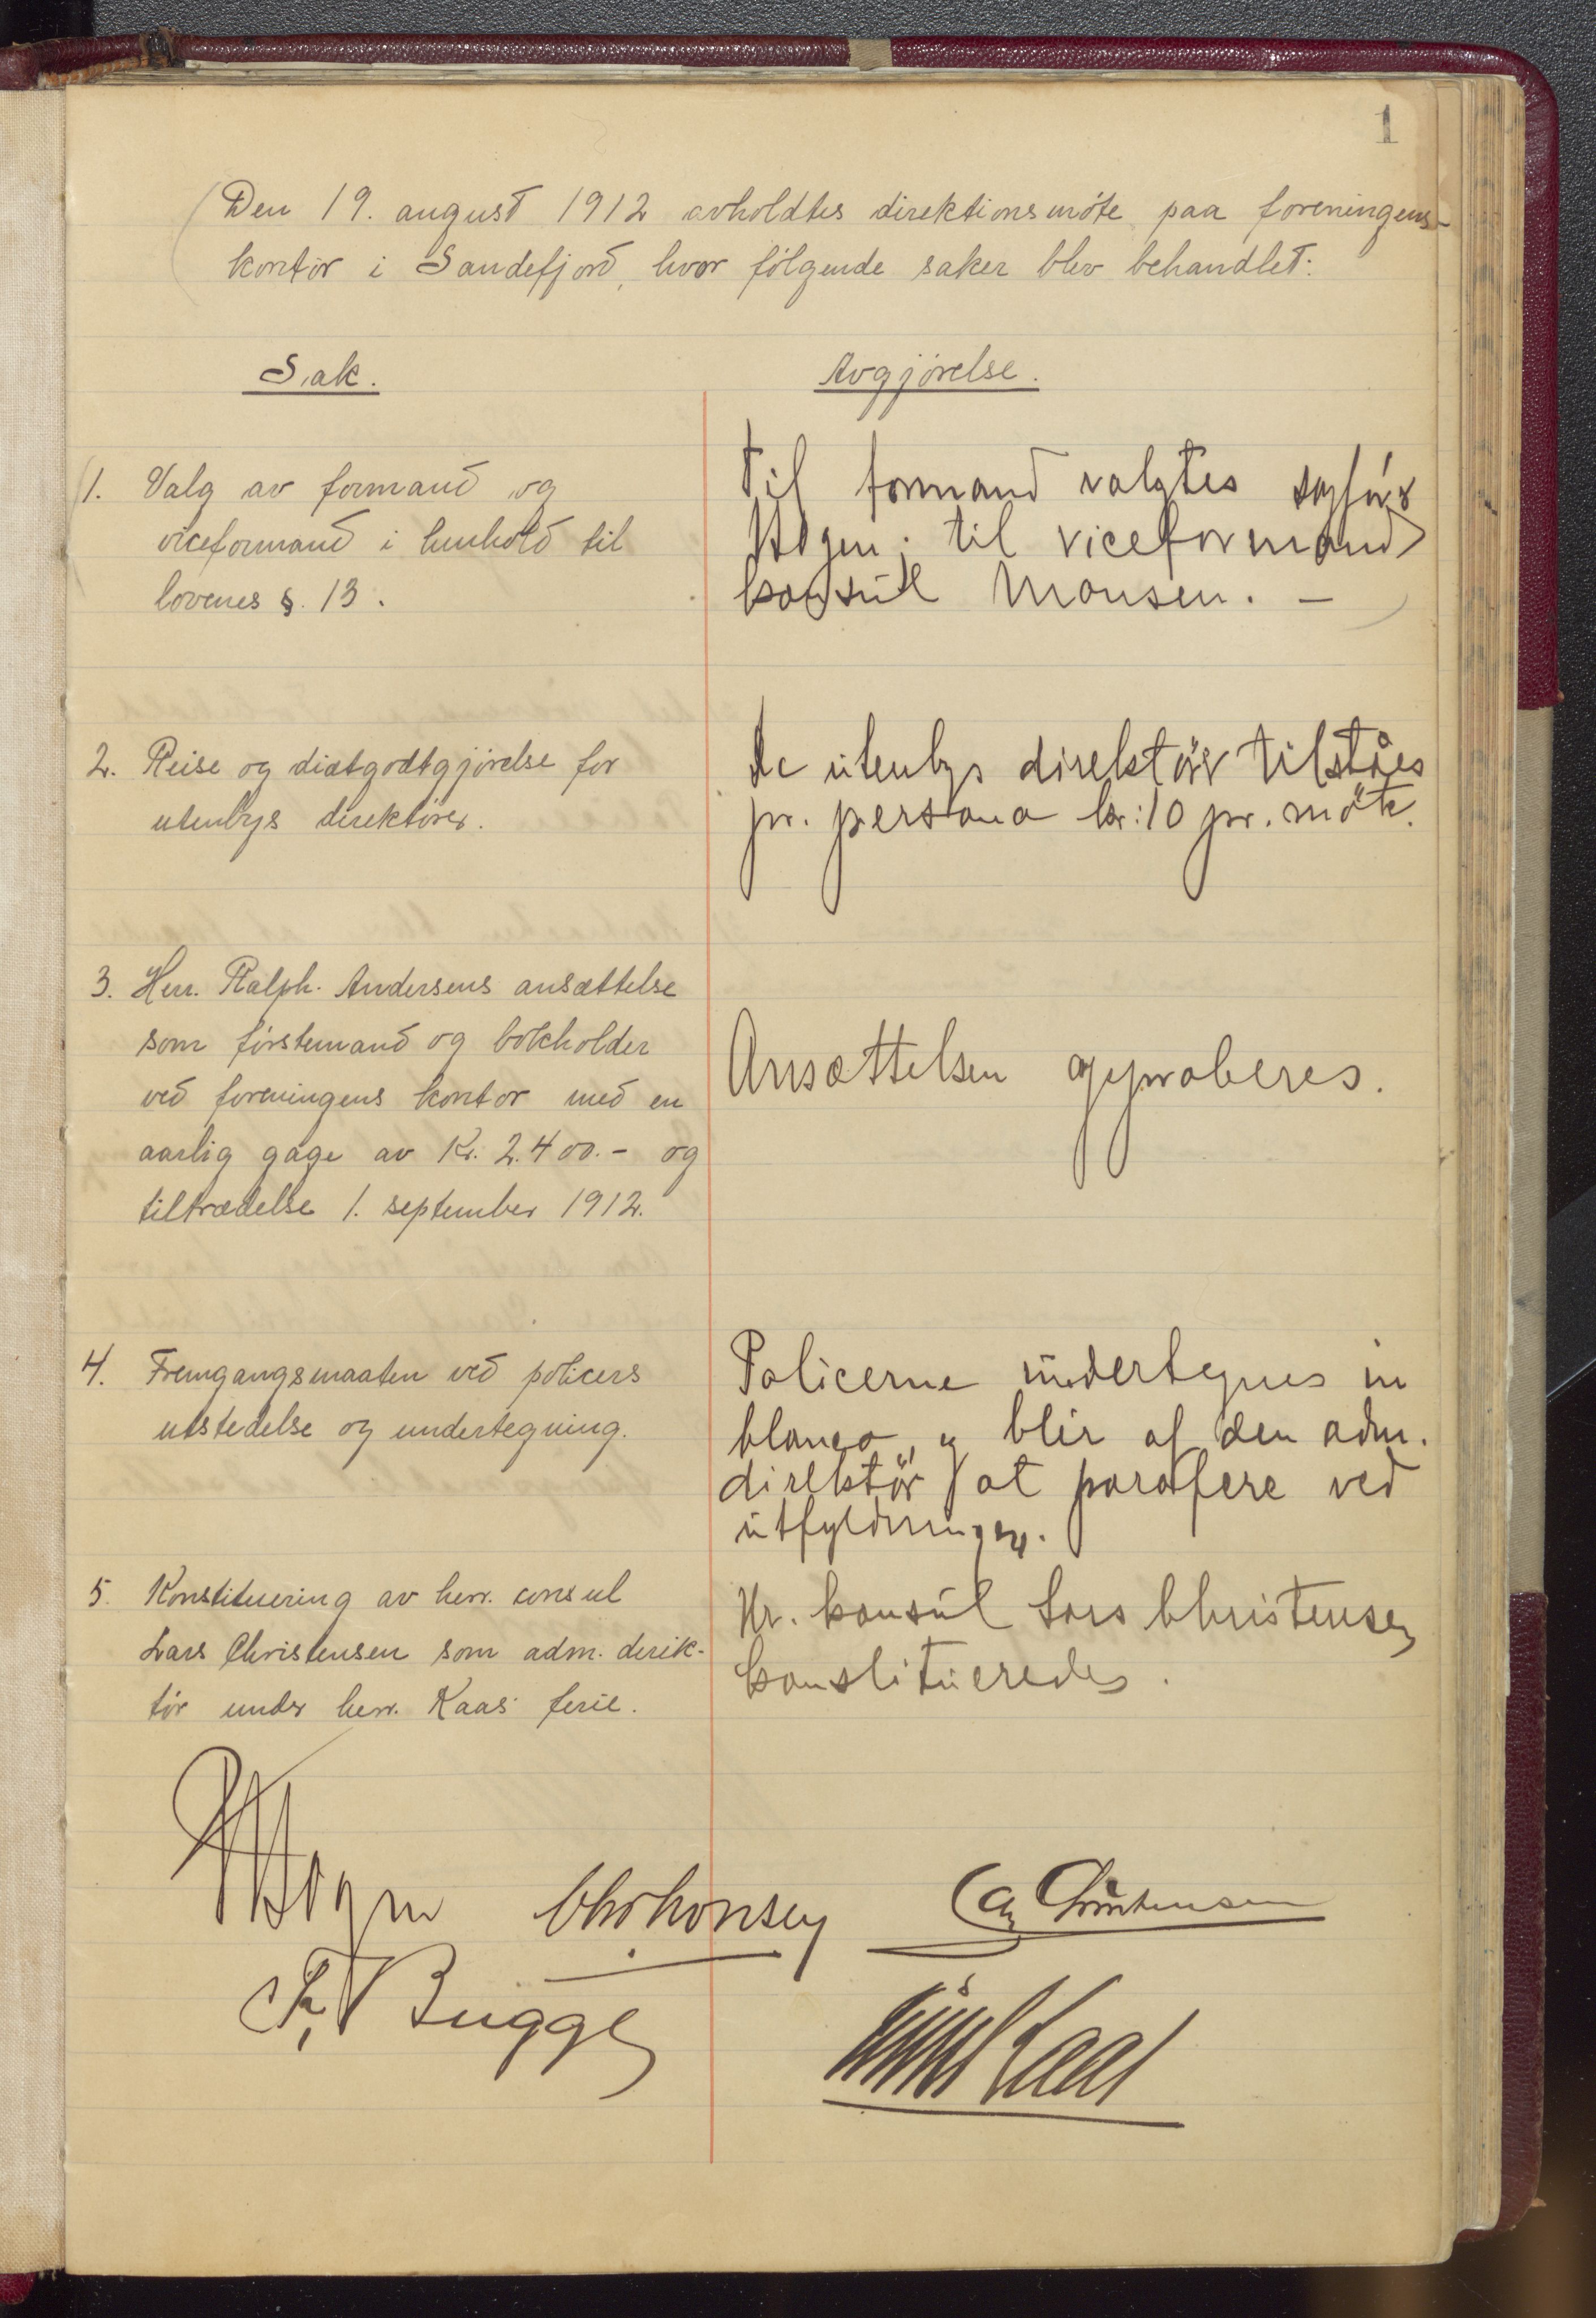 1
Den 19. august 1912 avholdtes direktionsmøte paa foreningens
kontor i Sandefjord, hvor følgende saker blev behandlet:
Sak.
Avgjørelse.
1. Valg av formand og
viceformand i henhold til
lovenes §. 13.
Til formand valgtes sagfør
til viceformand
konsul Monsen. –
2. Reise og diætgodtgjørelse for
utenbys direktører.
De utenbys direktør tilståes
pr. persona kr: 10 pr. møte.
3. Herr. Ralph. Andersens ansættelse
som førstemand og bokholder
ved foreningens kontor med en
aarlig gage av Kr. 2.400.- og
tiltrædelse 1. september 1912.
Ansættelsen approberes.
4. Fremgangsmaaten ved policers
utstedelse og undertegning.
Policerne undertegnes in
blanco, og blir af den adm.
direktør at parafere ved
utfyldningen.
5. Konstituering av herr. consul
Lars Christensen som adm. derik-
tør under herr. Kaas' ferie.
Hr. konsul Lars Christensen
konstitueredes.
Chr Monsen
Christensen
Bugge
Kaas